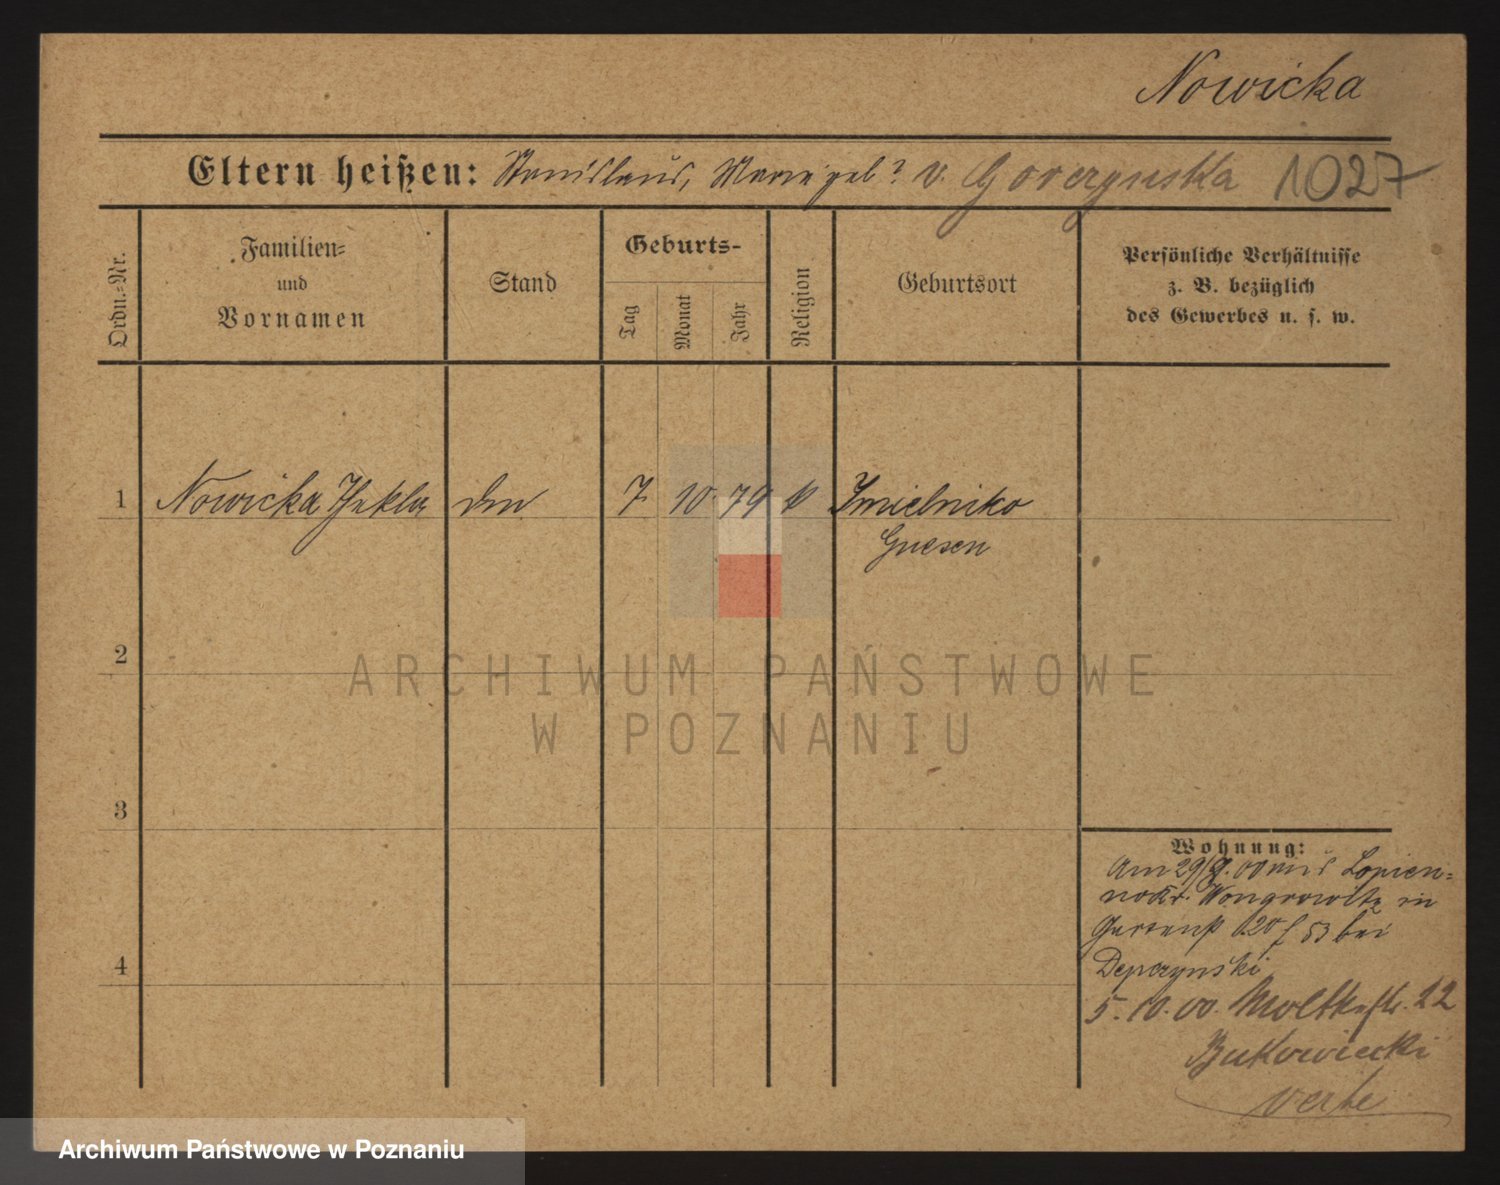 Nowicka
Eltern heißen: Stanislaus, Marie geb? v. Gorczynska 1027
Ordn.-Nr.
Familien-
und
Vornamen
Stand
Geburts-
Tag
Monat
Jahr
Religion
Geburtsort
Persönliche Verhältnisse
z. B. bezüglich
des Gewerbes u. s. w.
1 Nowicka Thekla 7. 10. 79 k Imielniko
Gnesen
2
3
4
Wohnung:
Am 29/ .00 Lopien-
no Kr. Wongrowitz in
53 bei
Depczynski
5. 10. 00. Moltkestr. 22
Bukowiecki
verte
ARCHIWUM PAŃSTWOWE
W POZNANIU
Archiwum Państwowe w Poznaniu